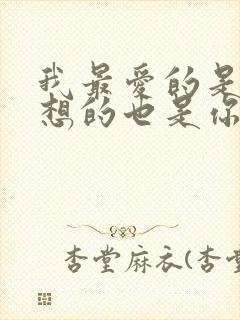 我最爱的是
想的也是你
杏堂麻衣(杏堂